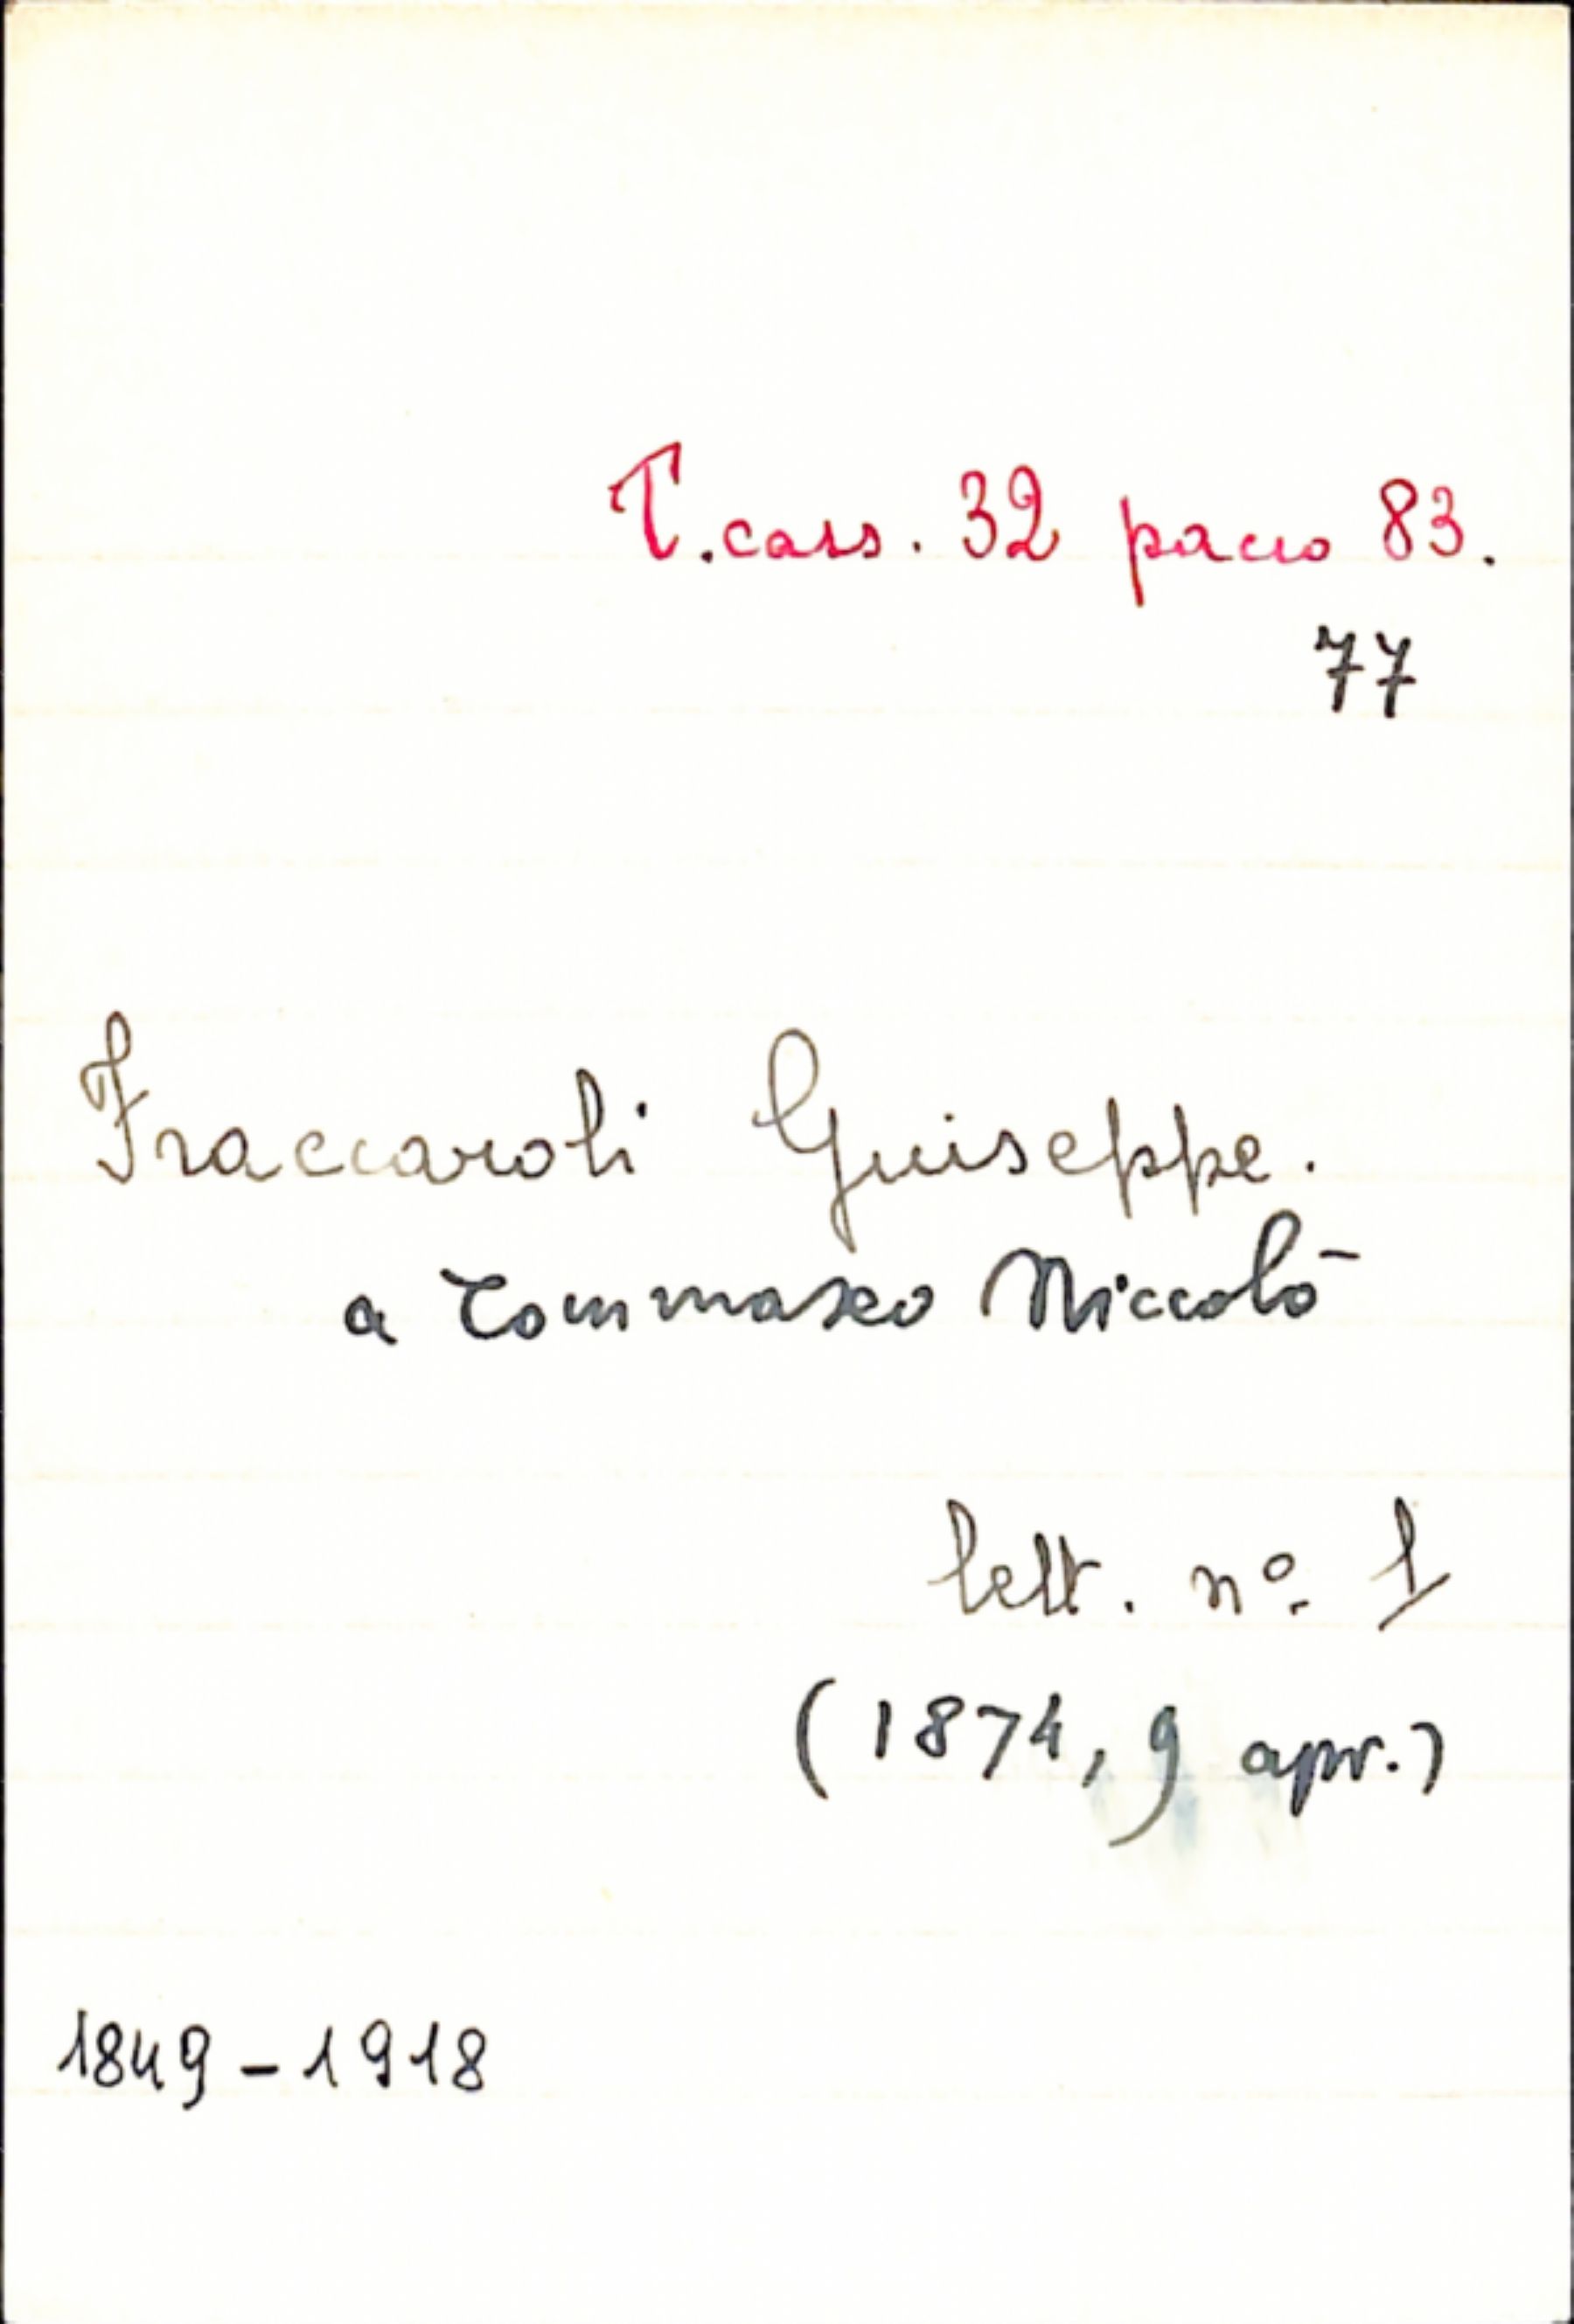 T. cass. 32 pacco 83.
77
Fraccaroli Giuseppe.
a Tommaseo Niccolò
lett. nº 1
(1874, 9 apr.)
1849-1918